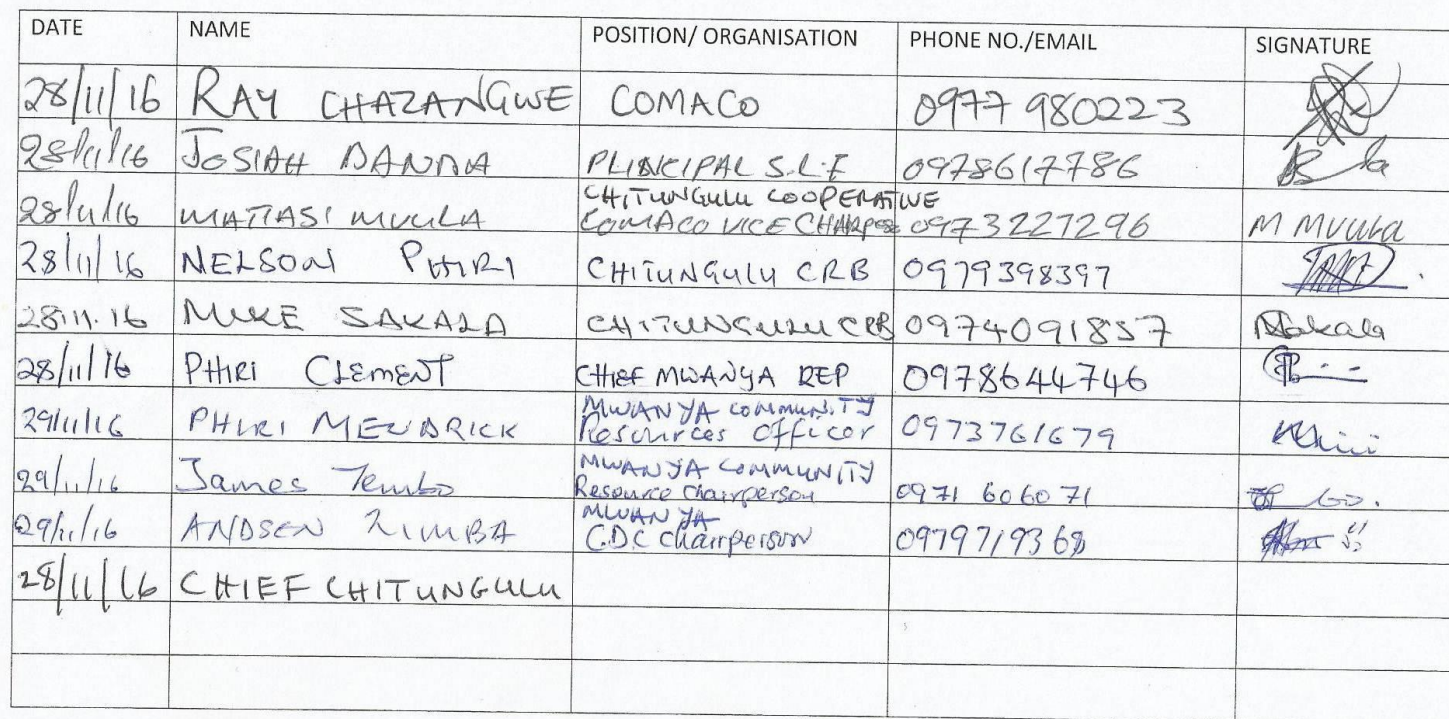 DATE NAME POSITION/ ORGANISATION PHONE NO./EMAIL SIGNATURE
28/11/16 RAY CHAZANGWE COMACO 0977 980223
28/11/16 JOSIAH BANDA PLINCIPAL S.L.F 0978617786
28/11/16 MATIASI MVULA CHITUNGULU COOPERATIVE
COMACO VICE CHAIRPER 0973227296 M MVULA
28/11/16 NELSON PHIRI CHITUNGULU CRB 0979398397
28.11.16 MIKE SAKALA CHITUNGULU CRB 0974091857 Sakala
28/11/16 PHIRI CLEMENT CHIEF MWANYA REP 0978644746
29/11/16 PHIRI MENDRICK MWANYA COMMUNITY
Resources Officer 0973761679
29/11/16 James Tembo MWANYA COMMUNITY
Resource chairperson 0971 606071
29/11/16 ANDSEN ZIMBA MWANYA
CDC chairperson 0979719368
28/11/16 CHIEF CHITUNGULU